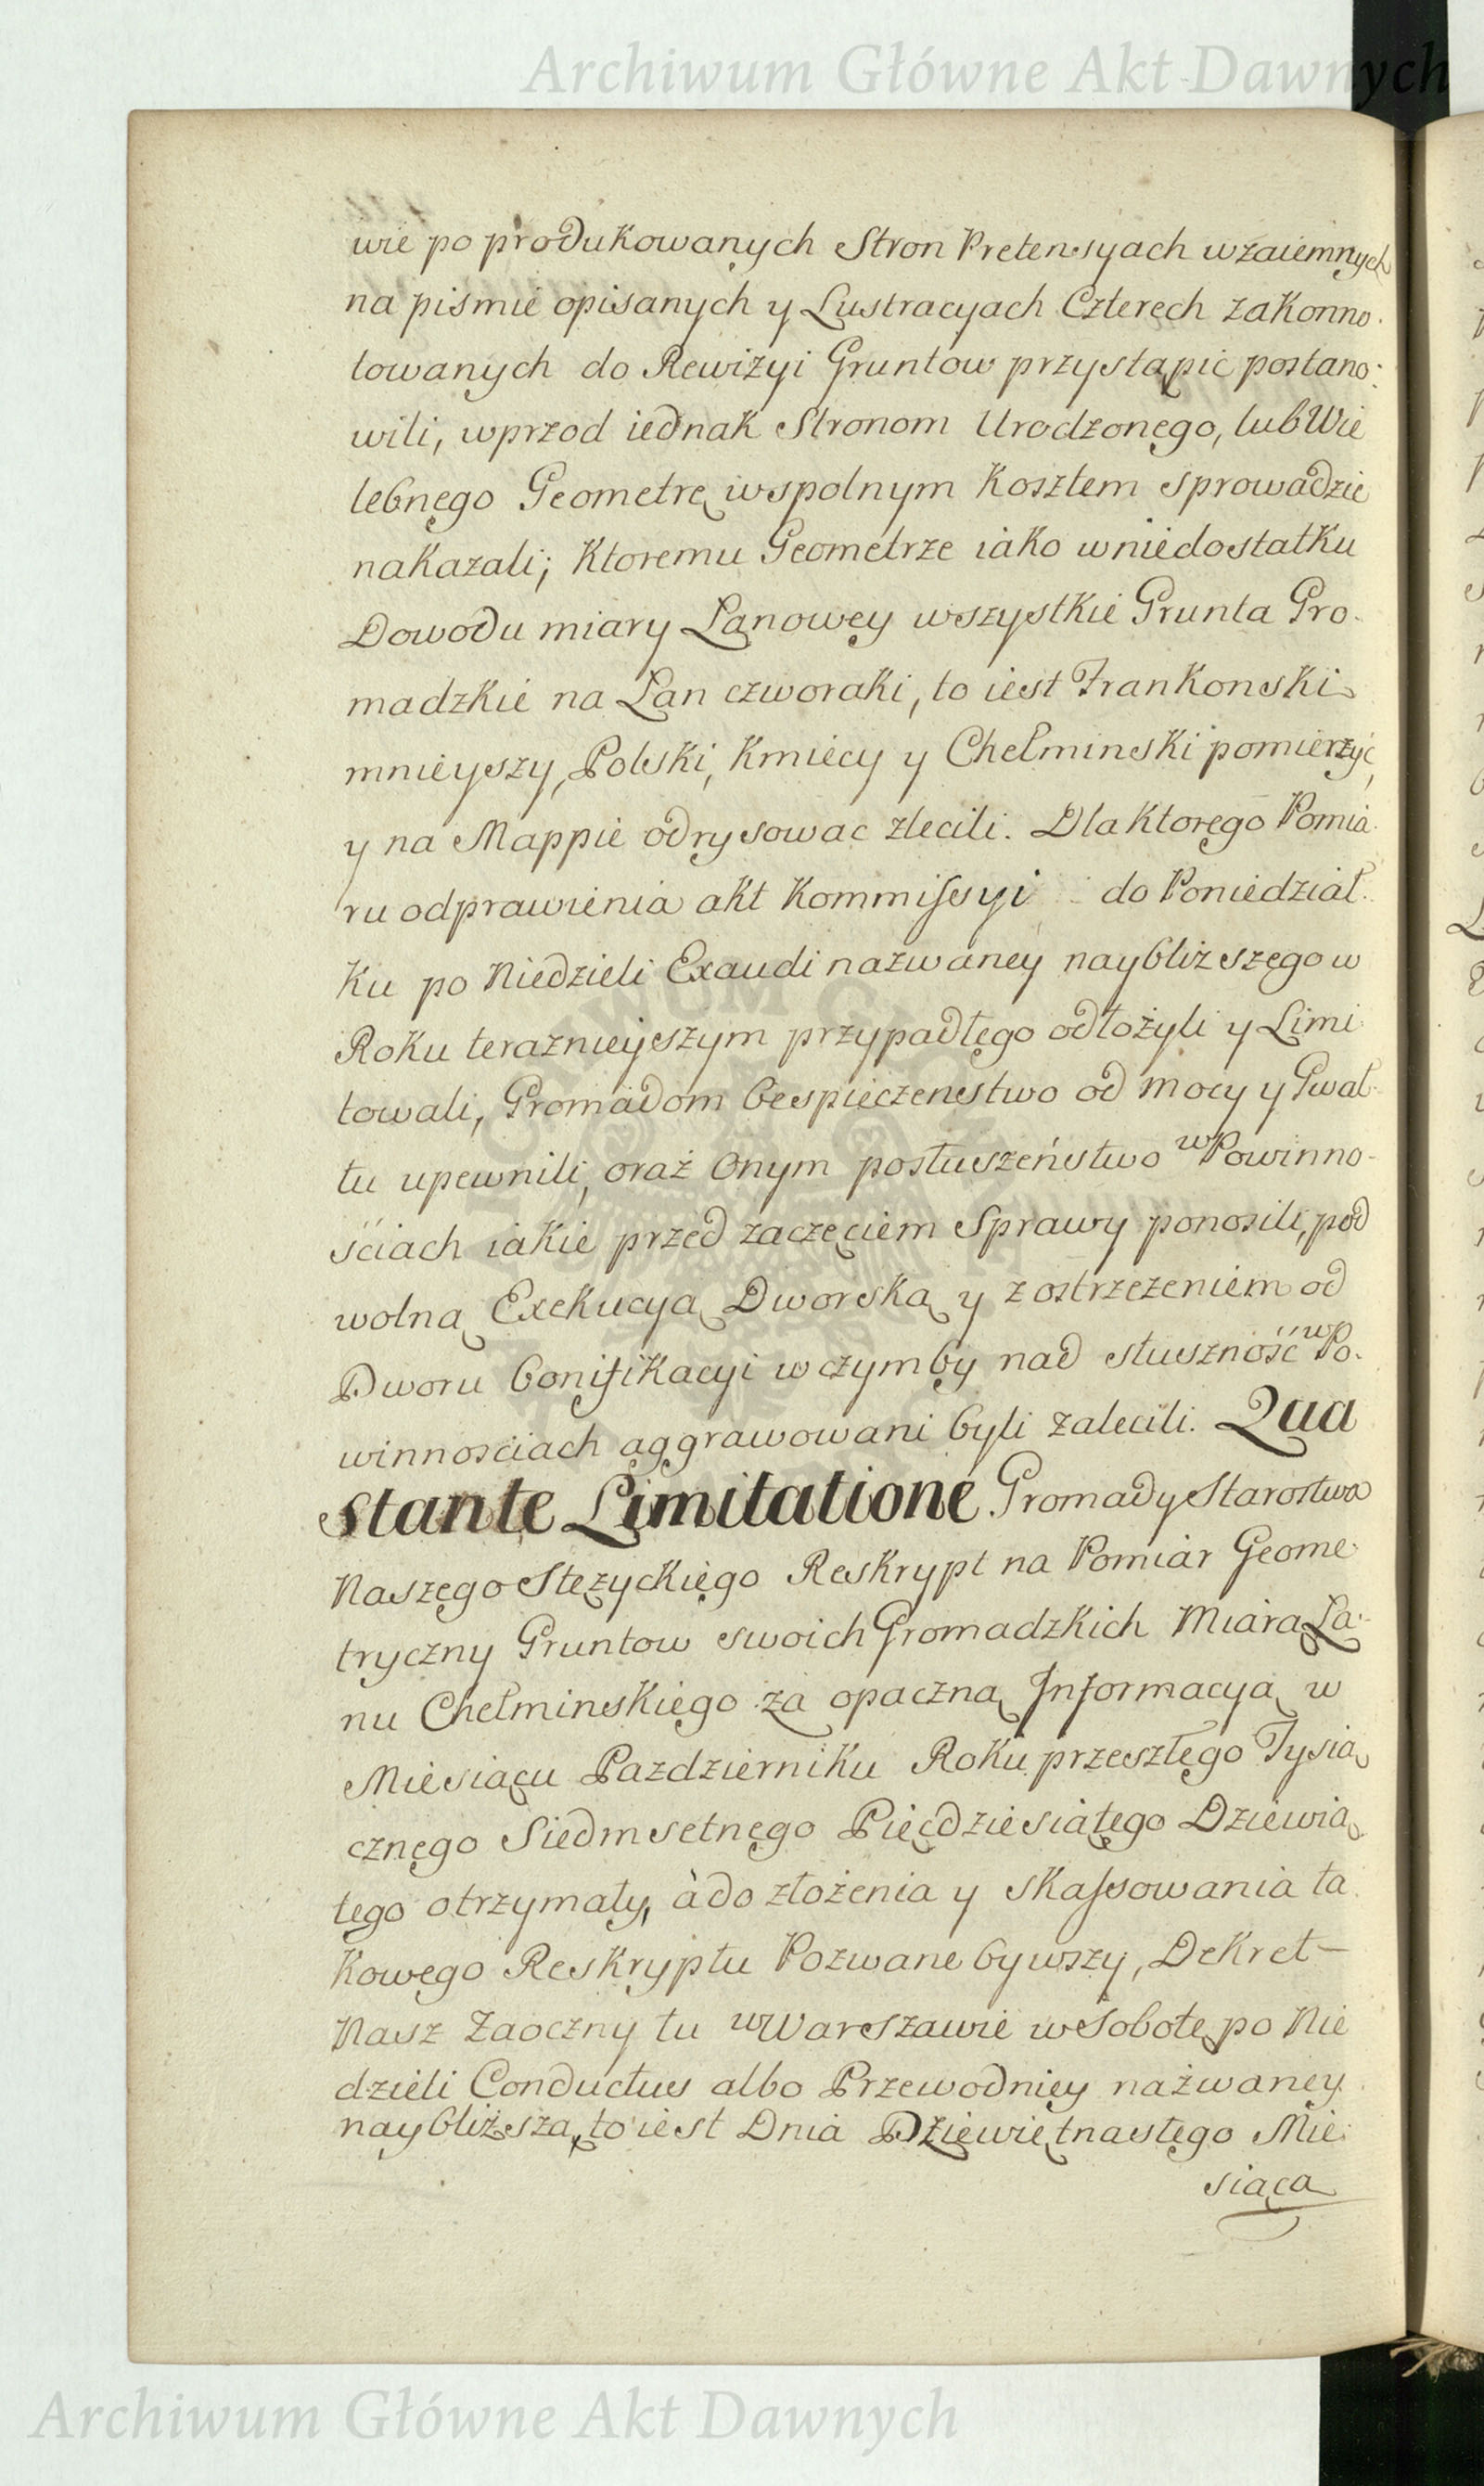 Archiwum Główne Akt Dawnych
wie po produkowanych Stron Pretensyach wzaiemnych
na pismie opisanych y Lustracyach Czterech zakonno.
towanych do Rewizyi Gruntow przystąpic postano:
wili, wprzod iednak Stronom Urodzonego, lub Wie
lebnego Geometrę wspolnym Kosztem sprowadzic
nakazali; Ktoremu Geometrze iako w niedostatku
Dowodu miary Lanowey wszystkie Grunta Gro.
madzkie na Łan czworaki, to iest Frankonski
mnieyszy, Polski, Kmiecy y Chełminski pomierzyć,
y na Mappie odrysowac zlecili. Dla Ktorego Pomia.
ru odprawienia akt Kommissyi do Poniedział.
Ku po Niedzieli Exaudi nazwaney naybliższego w
Roku teraznieyszym przypadłego odłożyli y Limi
towali, Gromadom bespieczenstwo od mocy y Gwał
tu upewnili, oraz Onym posłuszeństwo w Powinno-
ściach iakie przed zaczęciem Sprawy ponosili, pod
wolną Exekucyą Dworską y z ostrzeżeniem od
Dworu bonifikacyi w czymby nad słuszność w Po.
winnosciach aggrawowani byli zalecili. Qua
Stante Limitatione Gromady Starostwa
Naszego Stężyckiego Reskrypt na Pomiar Geome
tryczny Gruntow swoich Gromadzkich Miarą Ła:
nu Chełminskiego za opaczną Informacyą w
Miesiącu Pazdzierniku Roku przeszłego Tysią
cznego Siedmsetnego Pięcdziesiątego Dziewią
tego otrzymały, à do złożenia y skassowania ta
kowego Reskryptu Pozwane bywszy, Dekret
Nasz Zaoczny tu w Warszawie w Sobotę po Nie
dzieli Conductus albo Przewodniey nazwaney
naybliższą, to iest Dnia Dziewiętnastego Mie:
siąca
Archiwum Główne Akt Dawnych